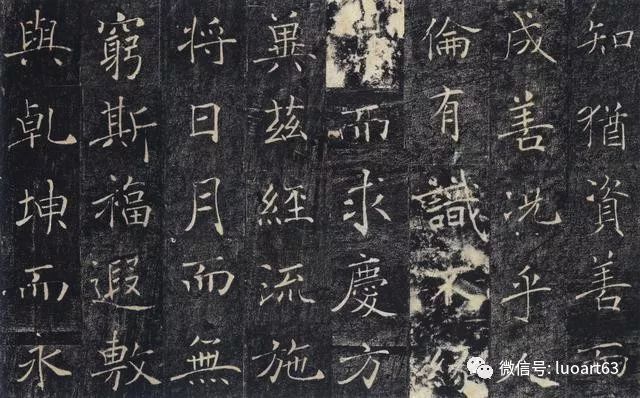 知猶資善而
成善況乎人
倫有識不緣
而求慶方
冀茲經流施
将日月而無
窮斯福遐敷
與乾坤而永
微信号: luoart63